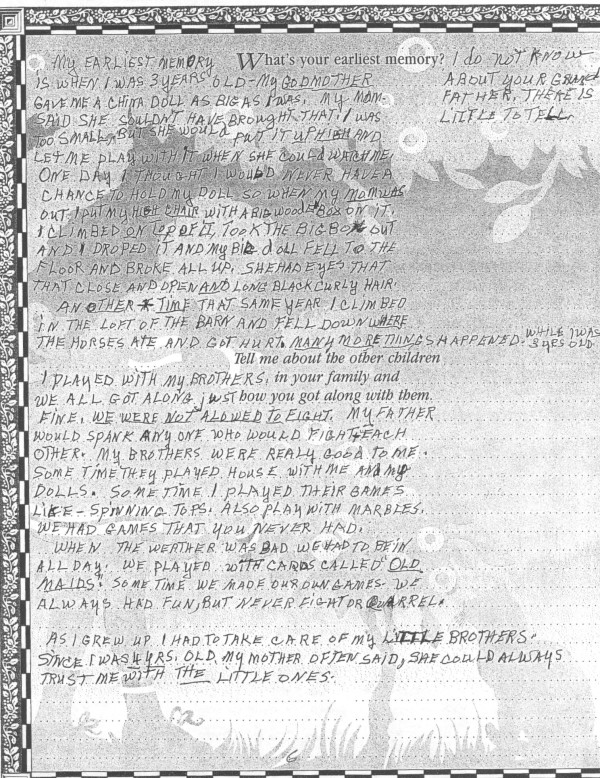 What's your earliest memory?
MY EARLIEST MEMORY
IS WHEN I WAS 3 YEARS OLD - MY GODMOTHER
GAVE ME A CHINA DOLL AS BIG AS I WAS. MY MOM
SAID SHE SOULDN'T HAVE BROUGHT THAT. I WAS
TOO SMALL, BUT SHE WOULD PUT IT UP HIGH AND
LET ME PLAY WITH IT WHEN SHE COULD WATCH ME.
ONE DAY I THOUGHT I WOULD NEVER HAVE A
CHANCE TO HOLD MY DOLL SO WHEN MY MOM WAS
OUT, I PUT MY HIGH CHAIR WITH A BIG WOODEN BOX ON IT.
I CLIMBED ON TOP OF IT, TOOK THE BIG BOX OUT
AND I DROPED IT AND MY BIG DOLL FELL TO THE
FLOOR AND BROKE ALL UP. SHE HAD EYES THAT
THAT CLOSE AND OPEN AND LONG BLACK CURLY HAIR.
ANOTHER TIME THAT SAME YEAR I CLIMBED
IN THE LOFT OF THE BARN AND FELL DOWN WHERE
THE HORSES ATE AND GOT HURT. MANY MORE THINGS HAPPENED. WHILE I WAS
3 YRS OLD.
I DO NOT KNOW
ABOUT YOUR GRAND
FATHER. THERE IS
LITTLE TO TELL.
Tell me about the other children
in your family and
just how you got along with them.
I PLAYED WITH MY BROTHERS,
WE ALL GOT ALONG
FINE. WE WERE NOT ALOWED TO FIGHT. MY FATHER
WOULD SPANK ANY ONE WHO WOULD FIGHT EACH
OTHER. MY BROTHERS WERE REALY GOOD TO ME.
SOME TIME THEY PLAYED HOUSE WITH ME AND MY
DOLLS. SOME TIME I PLAYED THEIR GAMES
LIKE - SPINNING TOPS. ALSO PLAY WITH MARBLES.
WE HAD GAMES THAT YOU NEVER HAD.
WHEN THE WEATHER WAS BAD WE HAD TO BE IN
ALL DAY. WE PLAYED WITH CARDS CALLED "OLD
MAIDS". SOME TIME WE MADE OUR OWN GAMES. WE
ALWAYS HAD FUN, BUT NEVER FIGHT OR QUARREL.
AS I GREW UP I HAD TO TAKE CARE OF MY LITTLE BROTHERS.
SINCE I WAS 4 YRS. OLD. MY MOTHER OFTEN SAID, SHE COULD ALWAYS
TRUST ME WITH THE LITTLE ONES.
6